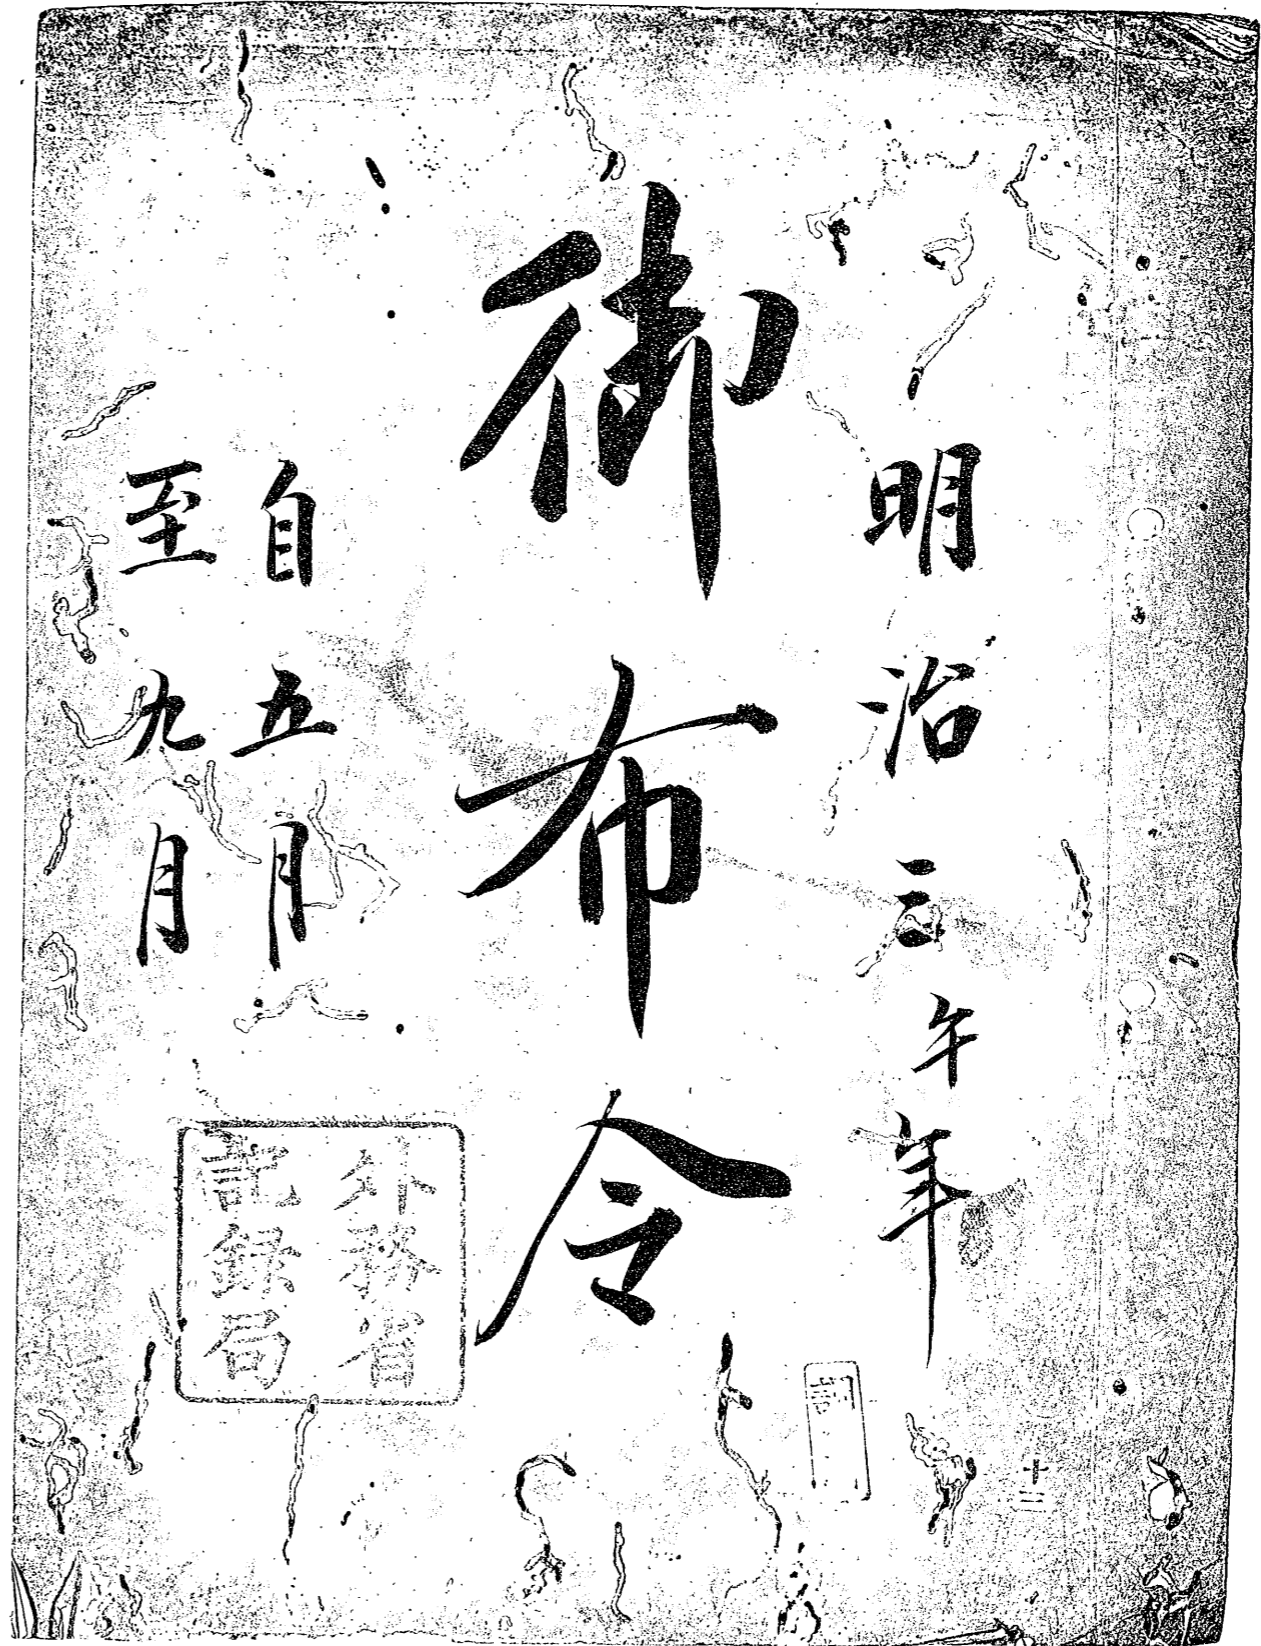 明治三午年
御布令
自五月
至九月
外務省
記録局
十二